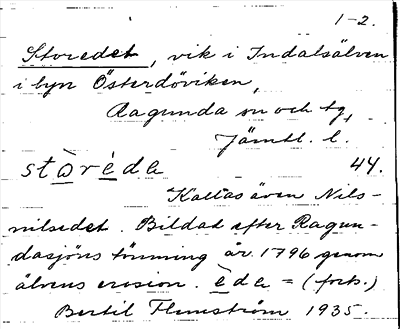 1-2.
Storedet, vik i Indalsälven
i byn Österdöviken,
Ragunda sn och tg,
Jämtl. l.
stòrèda 44.
Kallas även Nils-
nilsedet. Bildat efter Ragun-
dasjöns tömning år 1796 genom
älvens erosion. èda = (forts.)
Bertil Flemström 1935.